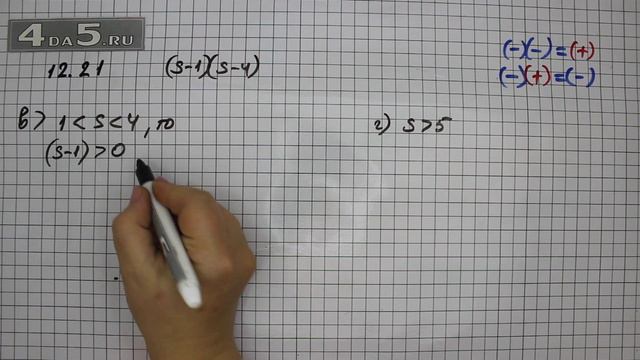 4DA5.RU
12.21 (s-1)(s-4)
(-)(-)=(+)
(-)(+)=(-)
в) 1<s<4, то
(s-1)>0
г) s>5